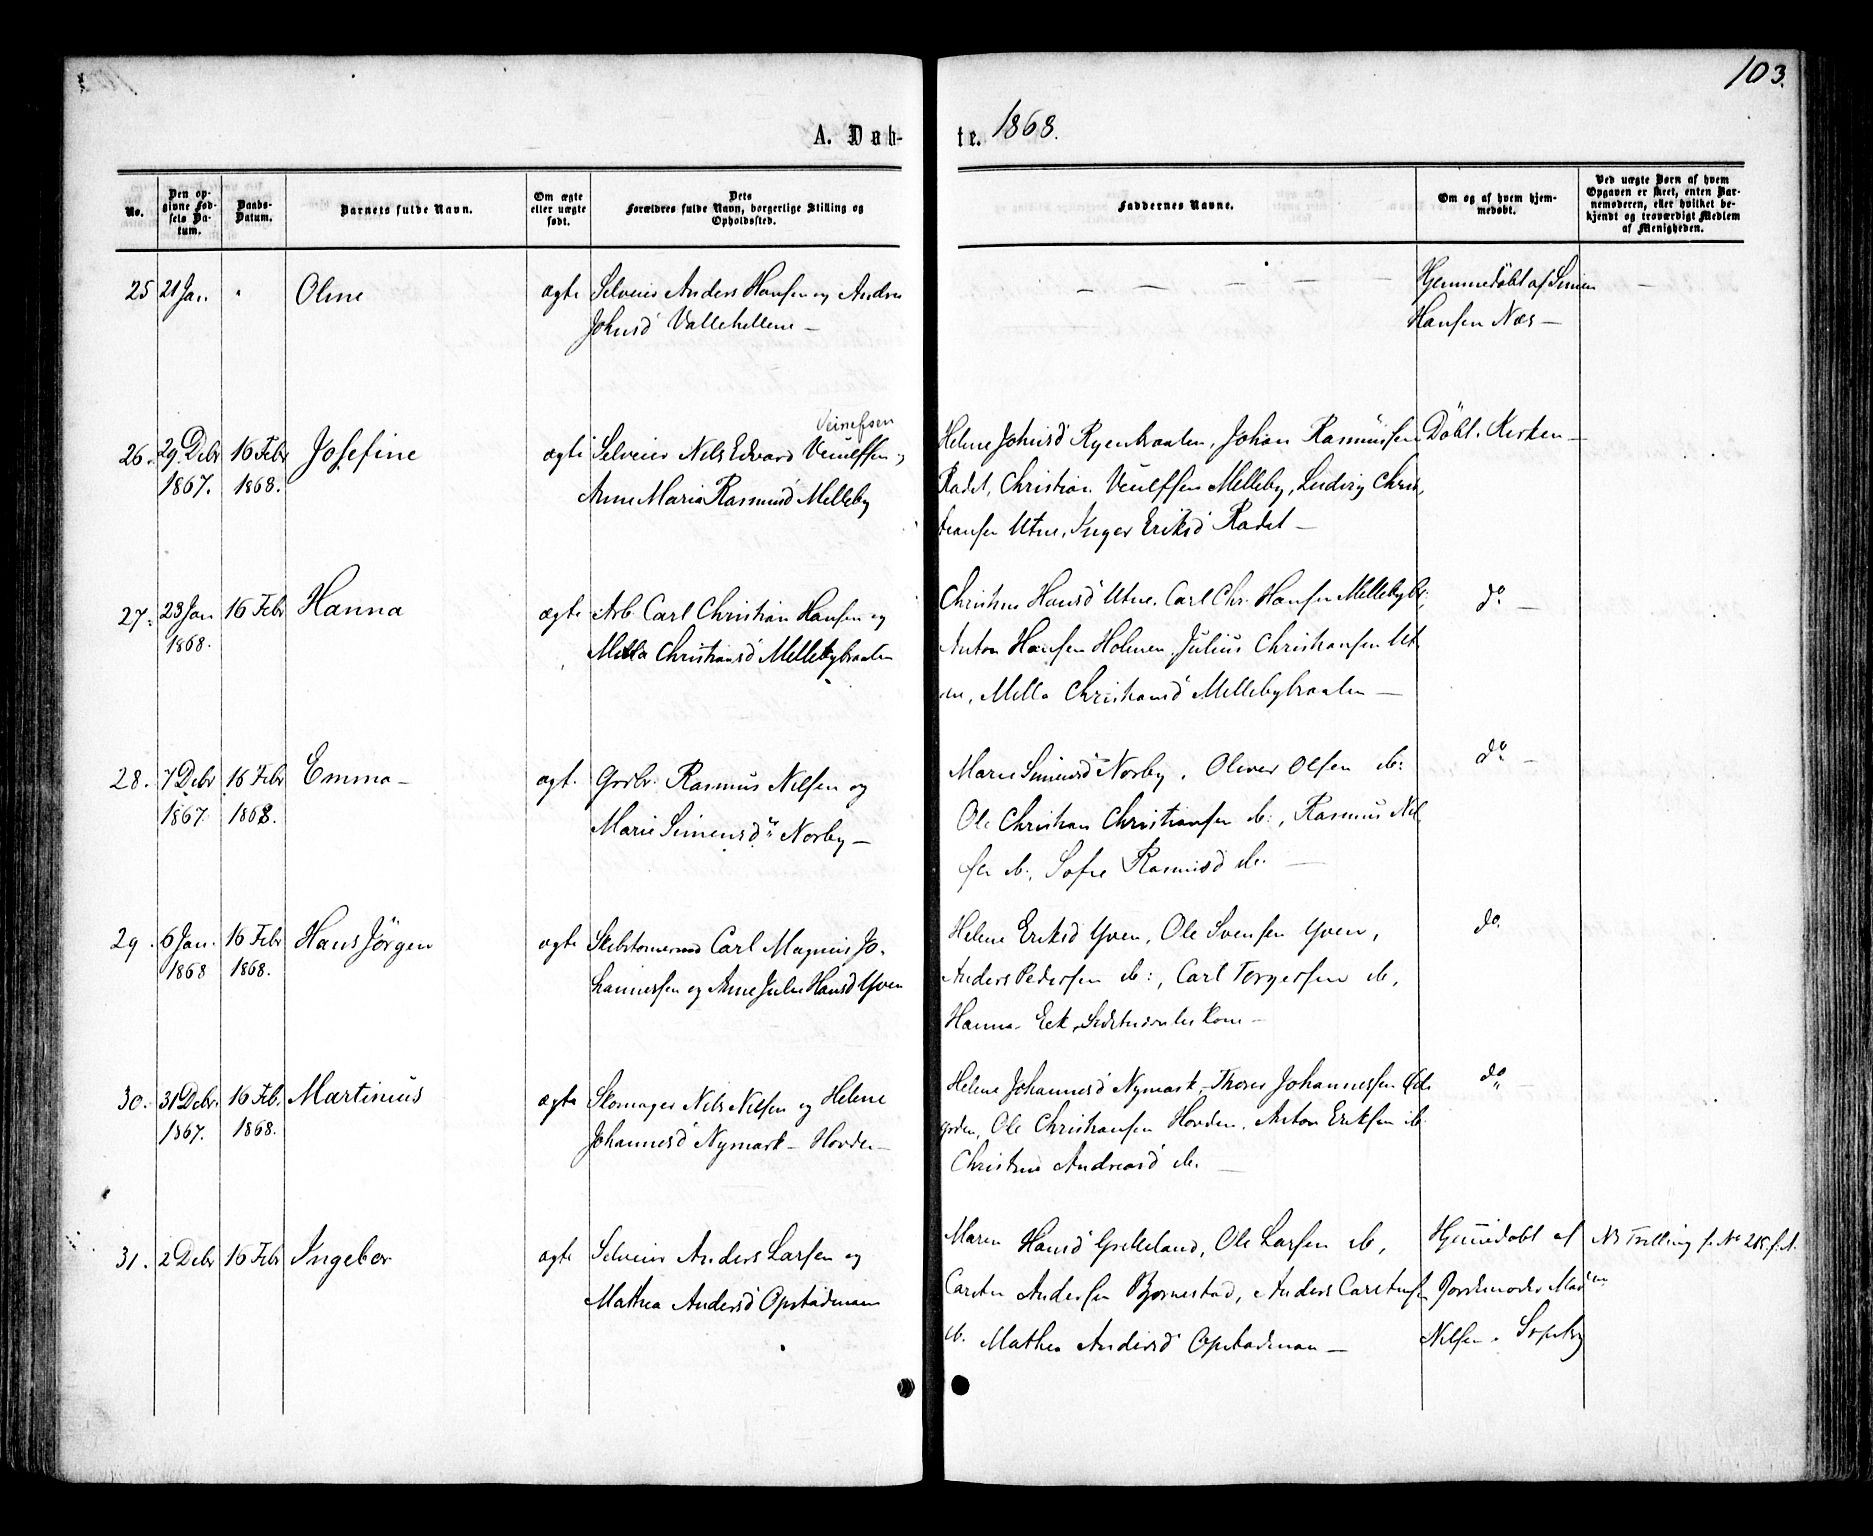 103.
A. Døb-
te. 1868.
No.
Den op-
givne Fød-
sels Da-
tum.
Daabs-
Datum.
Barnets fulde Navn.
Om ægte
eller uægte
født.
Dets
Forældres fulde Navn, borgerlige Stilling og
Opholdssted.
Faddernes Navne.
Om og af hvem hjem-
medøbt.
Ved uægte Børn af hvem
Opgaven er skeet, enten Bar-
nemoderen, eller hvilket be-
kjendt og troværdigt Medlem
af Menigheden.
25 21 Jan. " Oline ægte Selveier Anders Hansen og Andrea
Johnsd Vallehellene —
— — — —
Hjemmedöbt af Simen
Hansen Næs —
26. 29. Debr 16 Febr Josefine ægte Selveier Nils Edvard
1867. 1868.
Anne Maria Rasmusd Melleby
Helene Johnsd Ryenbraaten, Johan Rasmussen
Radet, Christian Melleby, Ludvig Chris-
tiansen Utne, Inger Eriksd Radet —
Döbt i Kirken —
27. 23 Jan 16 Febr Hanna ægte Arb. Carl Christian Hansen og
1868.
Milla Christiansd Mellebybraaten
Christine Hansd Utne, Carl Chr. Hansen Mellebybr:,
Anton Hansen Holmen, Julius Christiansen Ut-
ne, Milla Christiansd Mellebybraaten —
do —
28. 7 Debr 16 Febr Emma — ægt. Grdbr. Rasmus Nilsen og
1867 1868.
Marie Simensd Norby —
Marie Simensd Norby, Oliver Olsen ib:
Ole Christian Christiansen ib:, Rasmus Nil-
sen ib., Sofie Rasmusd ib. —
do —
29. 6 Jan. 16 Febr Hans Jörgen ægte Skibstömermd Carl Magnus Jo-
1868 1868.
hannessen og Anne Julie Hansd Yven
Helene Eriksd Yven, Ole Svensen Yven,
Anders Pedersen ib:, Carl Torgersen ib,
Hanna Eek —
do.
30. 31 Debr. 16 Feb. Martinius ægte Skomager Nils Nilsen og Helene
1867. 1868.
Johannesd Nymark — Hovden —
Helene Johannesd Nymark, Thorer Johannessen
Ole Christiansen Hovden, Anton Eriksen ib.
Christine Andreasd ib. —
do —
31. 2 Debr 16 Febr Ingebor ægte Selveier Anders Larsen og
Mathea Andersd Opstadmoen
Maren Hansd Grelleland, Ole Larsen ib,
Carsten Andersen Bjørnestad, Anders Carstensen
ib. Mathea Andersd Opstadmoen —
Hjemedöbt af
Jordemoder Mad
Nilsen
NB Trilling f. No 215. f. A.